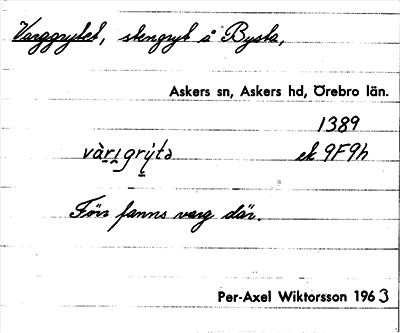 Varggrytet, stengryt å Bysta,
Askers sn, Askers hd, Örebro län.
1389
vàrıgrýtə ek 9F9h
Förr fanns varg där.
Per-Axel Wiktorsson 1963